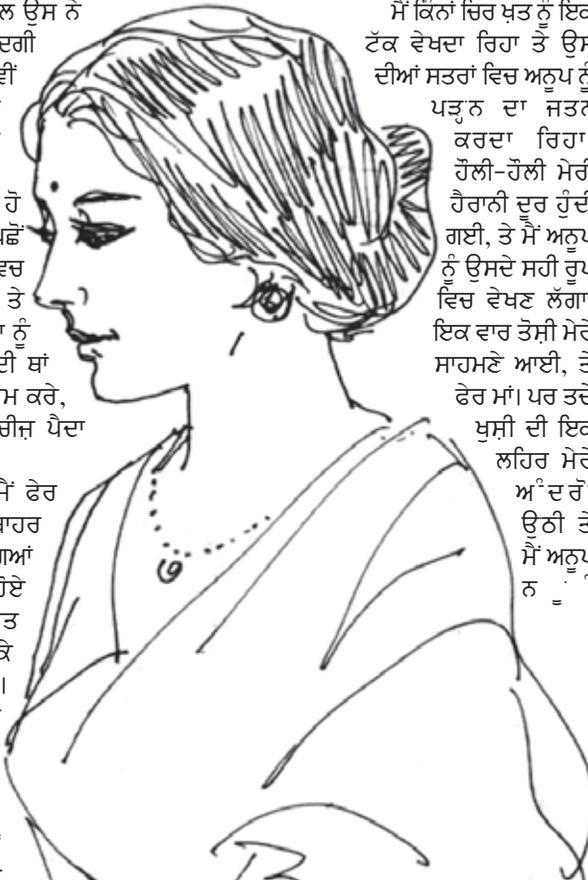 ਲ ਉਸ ਨੇ
ਦਗੀ
ਵੀਂ
ਹੋ
ਪਛੋਂ
ਵਚ
ਤੇ
ਾ ਨੂੰ
ਦੀ ਥਾਂ
ਮ ਕਰੇ,
ਚੀਜ਼ ਪੈਦਾ
ਮੈਂ ਫੇਰ
ਬਾਹਰ
ਗਆਂ
ਹੋਏ
ਤ
ਕੇ
।
ਮੈਂ ਕਿੰਨਾਂ ਚਿਰ ਖ਼ਤ ਨੂੰ ਇਕ
ਟੱਕ ਵੇਖਦਾ ਰਿਹਾ ਤੇ ਉਸ
ਦੀਆਂ ਸਤਰਾਂ ਵਿਚ ਅਨੂਪ ਨੂੰ
ਪੜ੍ਹਨ ਦਾ ਜਤਨ
ਕਰਦਾ ਰਿਹਾ
ਹੌਲੀ-ਹੌਲੀ ਮੇਰੀ
ਹੈਰਾਨੀ ਦੂਰ ਹੁੰਦੀ
ਗਈ, ਤੇ ਮੈਂ ਅਨੂਪ
ਨੂੰ ਉਸਦੇ ਸਹੀ ਰੂਪ
ਵਿਚ ਵੇਖਣ ਲੱਗਾ
ਇਕ ਵਾਰ ਤੋਸ਼ੀ ਮੇਰੇ
ਸਾਹਮਣੇ ਆਈ, ਤੇ
ਫੇਰ ਮਾਂ। ਪਰ ਤਦੇ
ਖੁਸ਼ੀ ਦੀ ਇਕ
ਲਹਿਰ ਮੇਰੇ
ਅੰਦਰੋਂ
ਉਠੀ ਤੇ
ਮੈਂ ਅਨੂਪ
ਨੂੰ